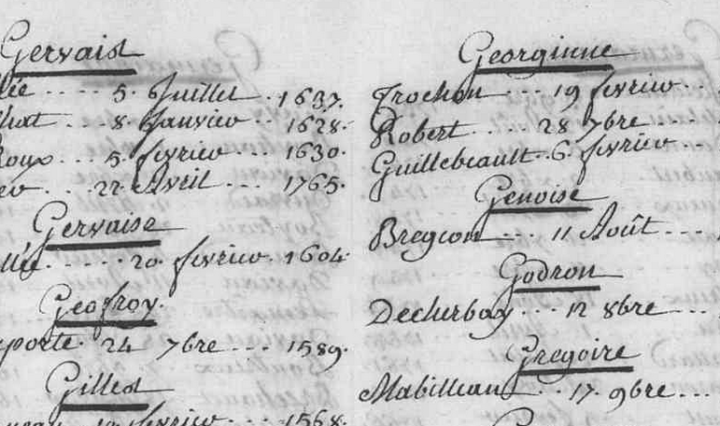 Gervaist
ée 5. Juillet 1637.
hat 8. Janvier 1628.
Roux 5. février 1630.
22 Avril 1765.
Gervaise
lée 20 février 1604
Geofroy.
porte. 24 7bre 1589.
Gillest
février 1568.
Georginne
Trochon 19 février
Robert 28 7bre
Guillebeault 6. février
Genoise
Bregeon 11 Août
Godron
Decherbay 12 8bre
Gregoire
Mabilleau 17. 9bre